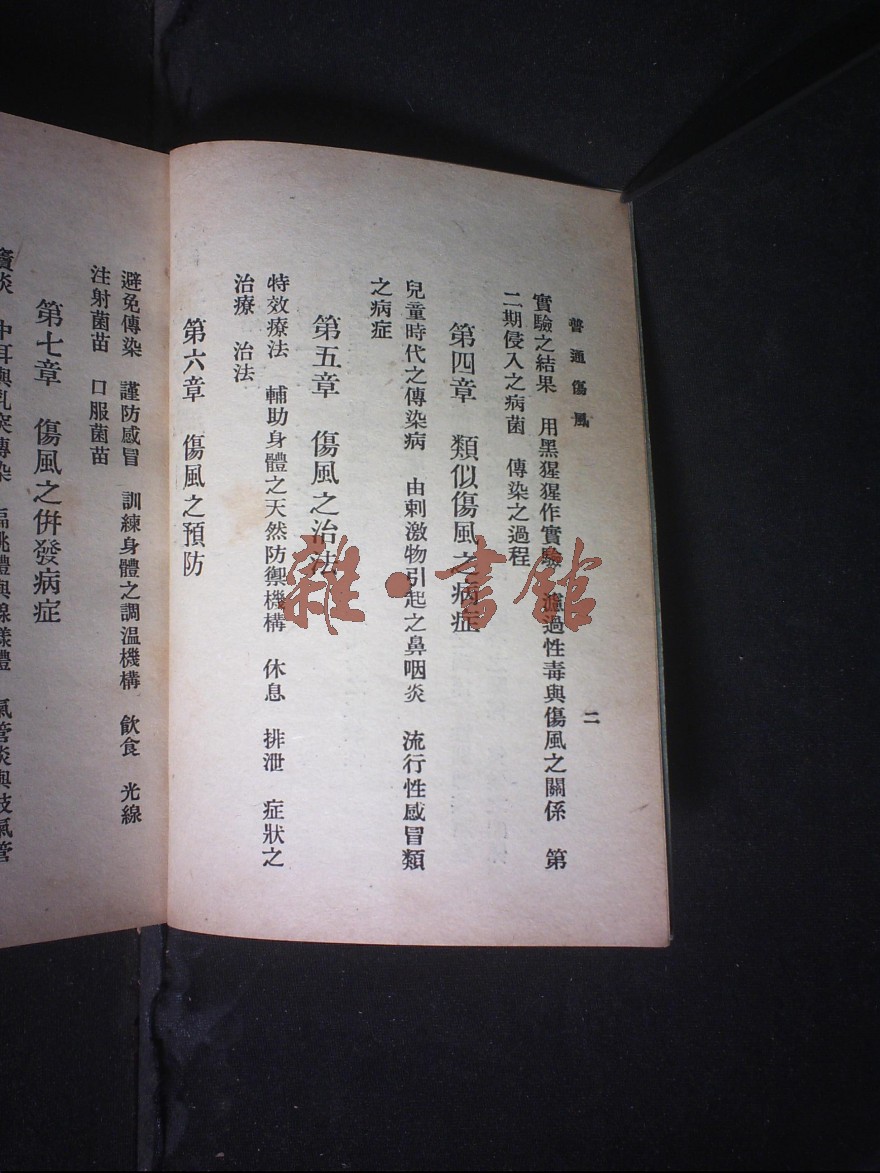 普通傷風
二
實驗之結果　用黑猩猩作實驗　濾過性毒與傷風之關係　第
二期侵入之病菌　傳染之過程
第四章　類似傷風之病症
兒童時代之傳染病　由刺激物引起之鼻咽炎　流行性感冒類
之病症
第五章　傷風之治法
特效療法　輔助身體之天然防禦機構　休息　排泄　症狀之
治療　治法
第六章　傷風之預防
避免傳染　謹防感冒　訓練身體之調溫機構　飲食　光線
注射菌苗　口服菌苗
第七章　傷風之併發病症
竇炎　中耳與乳突傳染　扁桃體與線樣體　氣管炎與枝氣管
雜·書館